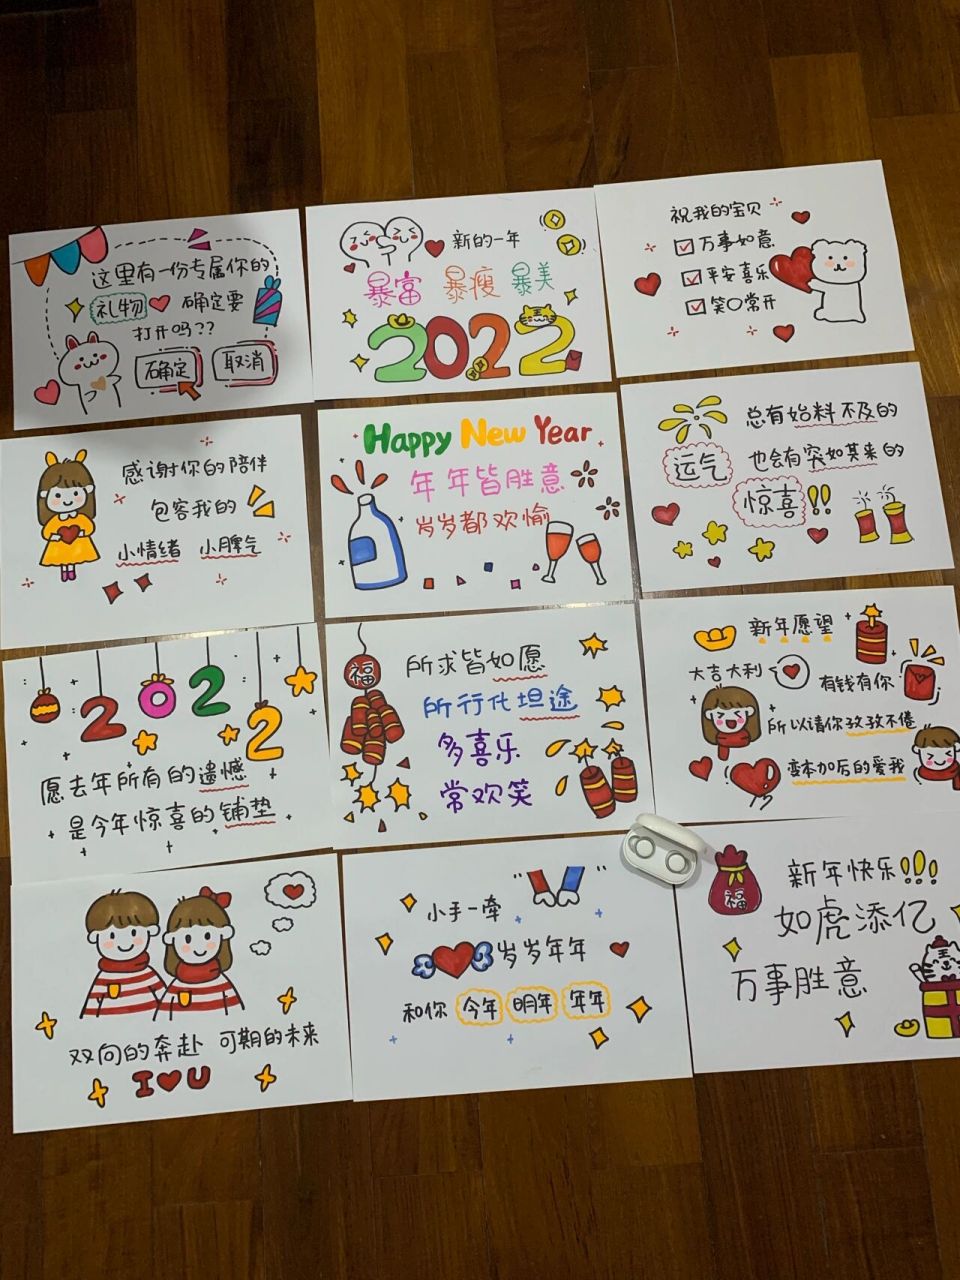 这里有一份专属你的
礼物 确定要
打开吗??
确定 取消
新的一年
暴富 暴瘦 暴美
2022
祝我的宝贝
万事如意
平安喜乐
笑口常开
感谢你的陪伴
包容我的
小情绪 小脾气
Happy New Year
年年皆胜意
岁岁都欢愉
总有始料不及的
运气 也会有突如其来的
惊喜!!
2022
愿去年所有的遗憾
是今年惊喜的铺垫
福
所求皆如愿
所行化坦途
多喜乐
常欢笑
新年愿望
大吉大利 有钱有你
所以请你孜孜不倦
变本加厉的爱我
双向的奔赴 可期的未来
I U
小手一牵
岁岁年年
和你 今年 明年 年年
福
新年快乐!!!
如虎添亿
万事胜意